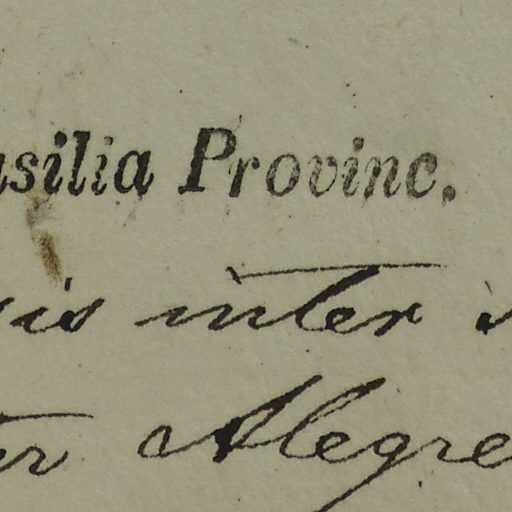 asilia Provinc.
is inter
er Alegre